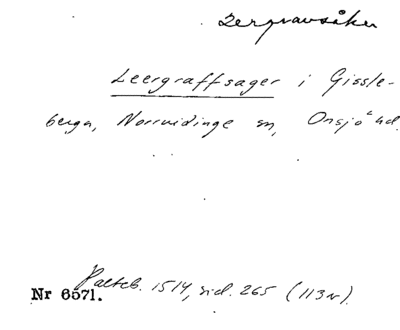 Lergravsåker
Leergraffsager i Gissle-
berga, Norrvidinge sn, Onsjö hd.
Palteb. 1514, sid. 265 (113v).
Nr 6571.